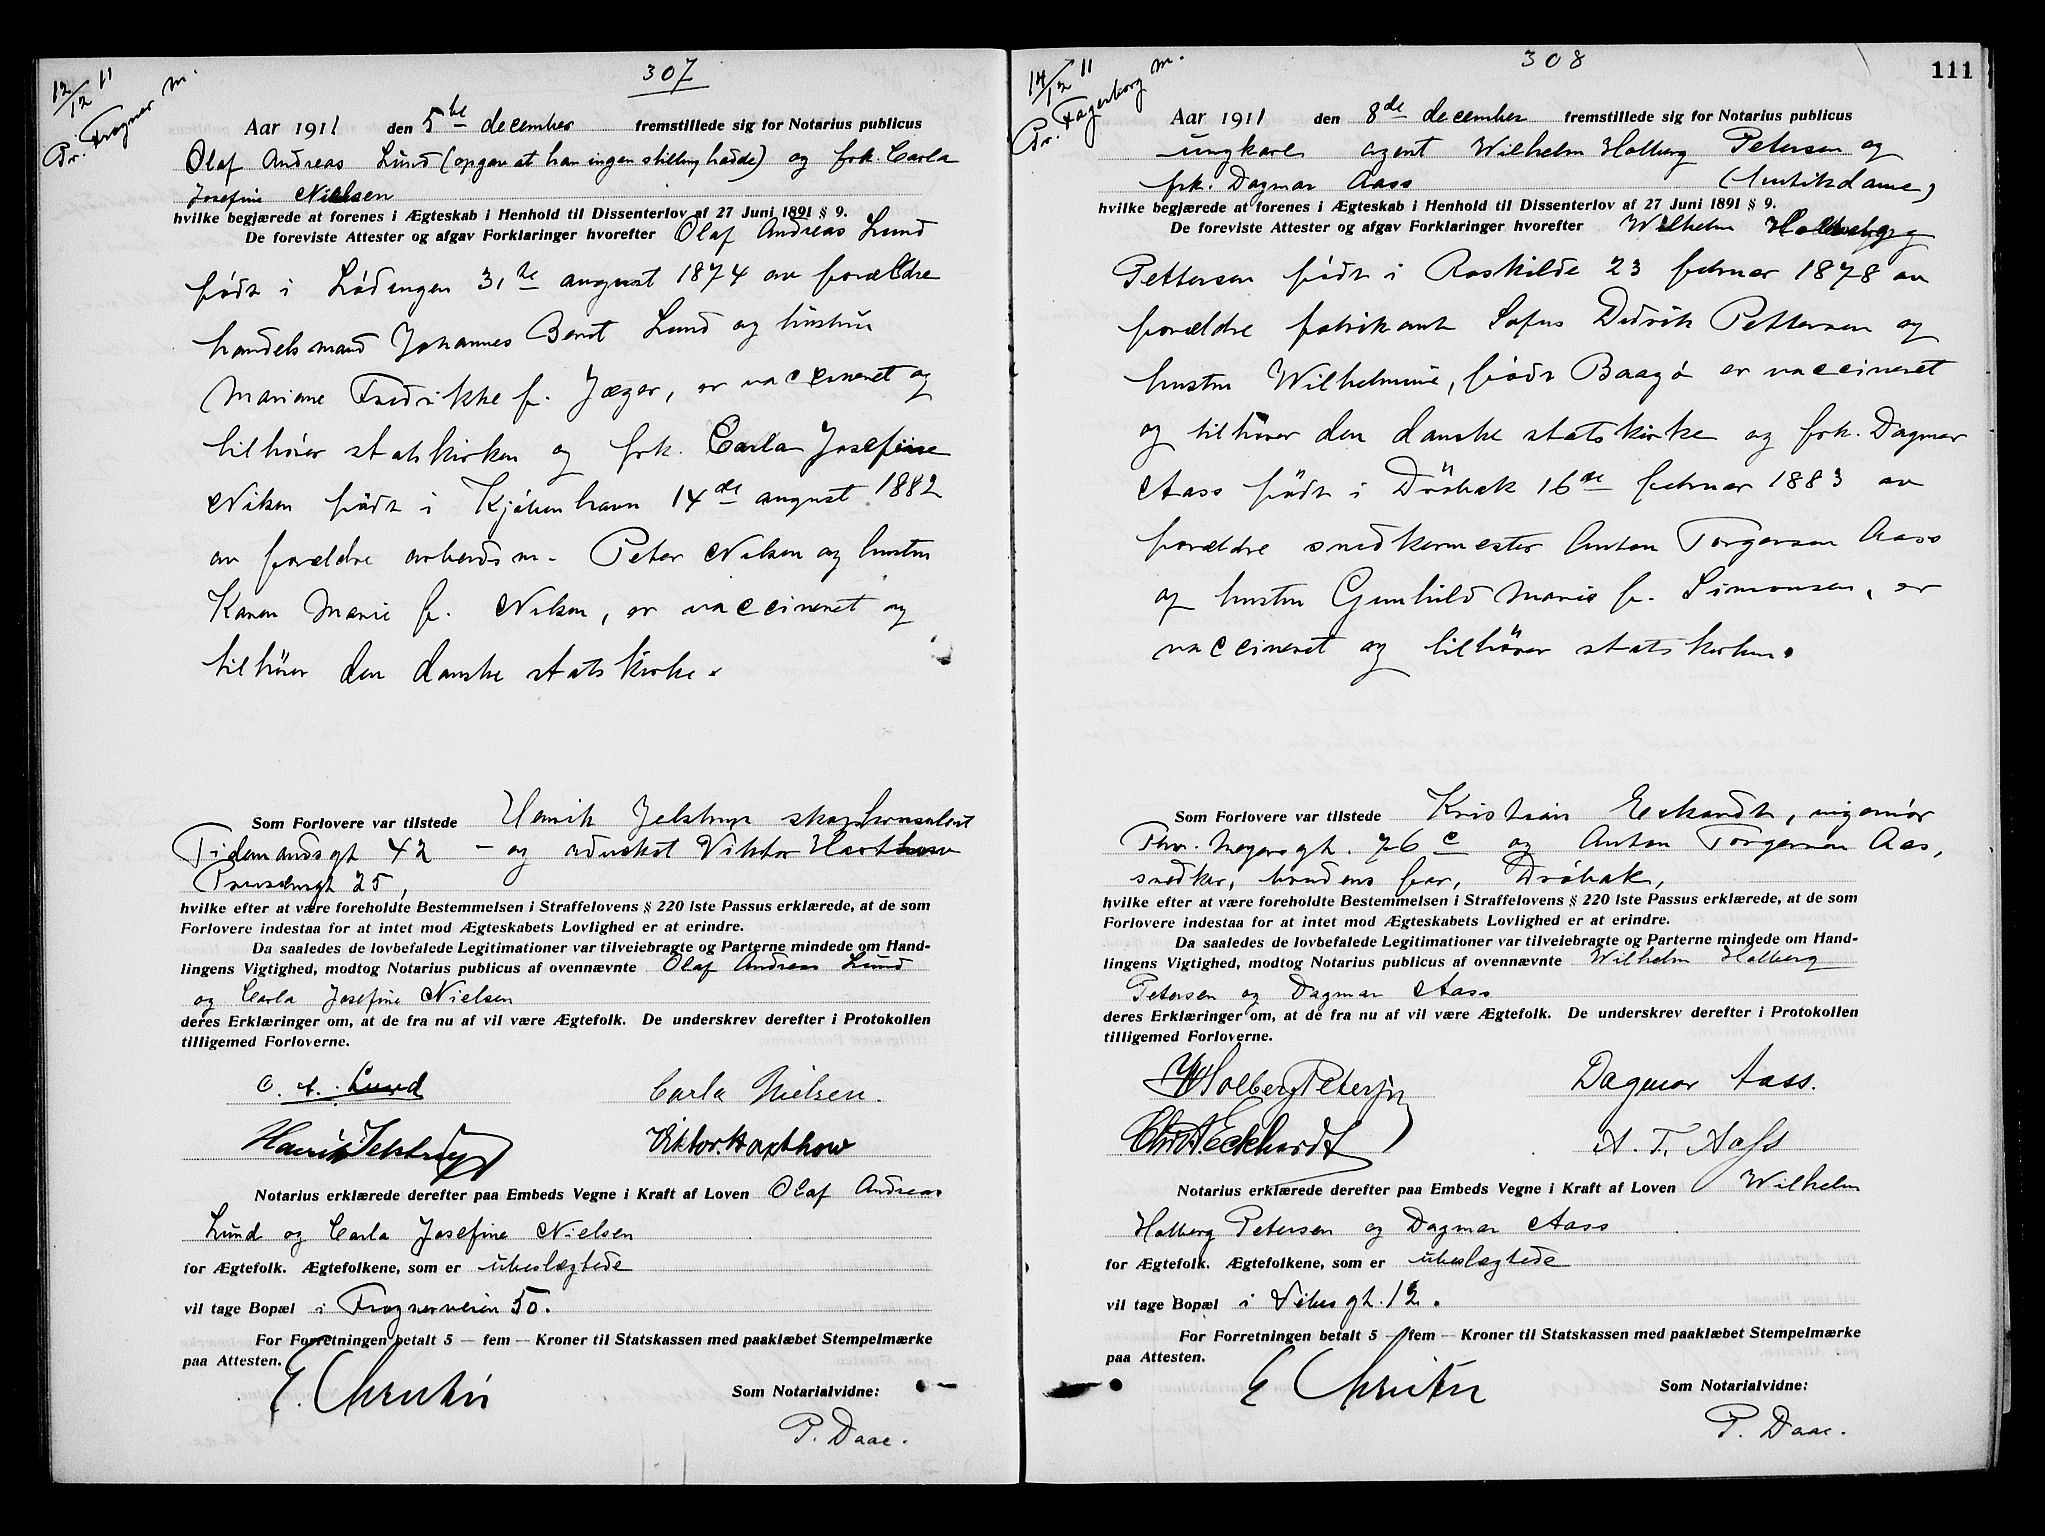 307
12/12 11
Pr. Frogner m.
Aar 1911 den 5te december fremstillede sig for Notarius publicus
Olaf Andreas Lund (opgav at han ingen stilling hadde) og frk. Carla
Josefine Nielsen
hvilke begjærede at forenes i Ægteskab i Henhold til Dissenterlov af 27 Juni 1891 § 9.
De foreviste Attester og afgav Forklaringer hvorefter Olaf Andreas Lund
født i Lødingen 31te august 1874 av forældre
handelsmand Johannes Berdt Lund og hustru
Mariane Fredrikke f. Jæger, er vaccineret og
tilhører statskirken og frk. Carla Josefine
Nilsen født i Kjøbenhavn 14de august 1882
av forældre arbeidsm. Peter Nilsen og hustru
Karen Marie f. Nilsen, er vaccineret og
tilhører den danske statskirke.
Som Forlovere var tilstede Henrik Jelstrup
Tidemandsgt 42 – og advokat Viktor Haxthow
25,
hvilke efter at være foreholdte Bestemmelsen i Straffelovens § 220 1ste Passus erklærede, at de som
Forlovere indestaa for at intet mod Ægteskabets Lovlighed er at erindre.
Da saaledes de lovbefalede Legitimationer var tilveiebragte og Parterne mindede om Hand-
lingens Vigtighed, modtog Notarius publicus af ovennævnte Olaf Andreas Lund
og Carla Josefine Nielsen
deres Erklæringer om, at de fra nu af vil være Ægtefolk. De underskrev derefter i Protokollen
tilligemed Forloverne.
O. A. Lund Carla Nielsen.
Henrik Jelstrup Viktor Haxthow
Notarius erklærede derefter paa Embeds Vegne i Kraft af Loven Olaf Andreas
Lund og Carla Josefine Nielsen
for Ægtefolk. Ægtefolkene, som er ubeslægtede
vil tage Bopæl i Frognerveien 50.
For Forretningen betalt 5 — fem — Kroner til Statskassen med paaklæbet Stempelmærke
paa Attesten.
E. Christie
Som Notarialvidne:
P. Daae.
308
111
14/12 11
Pr. Fagerborg m.
Aar 1911 den 8de december fremstillede sig for Notarius publicus
ungkarl agent Wilhelm Holberg Petersen og
frk. Dagmar Aass (butikdame)
hvilke begjærede at forenes i Ægteskab i Henhold til Dissenterlov af 27 Juni 1891 § 9.
De foreviste Attester og afgav Forklaringer hvorefter Wilhelm Holberg
Pettersen født i Roskilde 23 februar 1878 av
forældre fabrikant Sofus Didrik Pettersen og
hustru Wilhelmine, født Baagø er vaccineret
og tilhører den danske statskirke og frk. Dagmar
Aass født i Drøbak 16de februar 1883 av
forældre snedkermester Anton Torgersen Aass
og hustru Gunhild Marie f. Simonsen, er
vaccineret og tilhører statskirken.
Som Forlovere var tilstede Kristian Eckardt, ingeniør
Thv. Meyersgt. 76 c og Anton Torgersen Aas,
snedker, brudens far, Drøbak,
hvilke efter at være foreholdte Bestemmelsen i Straffelovens § 220 1ste Passus erklærede, at de som
Forlovere indestaa for at intet mod Ægteskabets Lovlighed er at erindre.
Da saaledes de lovbefalede Legitimationer var tilveiebragte og Parterne mindede om Hand-
lingens Vigtighed, modtog Notarius publicus af ovennævnte Wilhelm Holberg
Petersen og Dagmar Aass
deres Erklæringer om, at de fra nu af vil være Ægtefolk. De underskrev derefter i Protokollen
tilligemed Forloverne.
W Holberg Petersen Dagmar Aass.
Chr. Eckhardt A. T. Aass
Notarius erklærede derefter paa Embeds Vegne i Kraft af Loven Wilhelm
Holberg Petersen og Dagmar Aass
for Ægtefolk. Ægtefolkene, som er ubeslægtede
vil tage Bopæl i Vibesgt. 12.
For Forretningen betalt 5 — fem — Kroner til Statskassen med paaklæbet Stempelmærke
paa Attesten.
E Christie
Som Notarialvidne:
P. Daae.